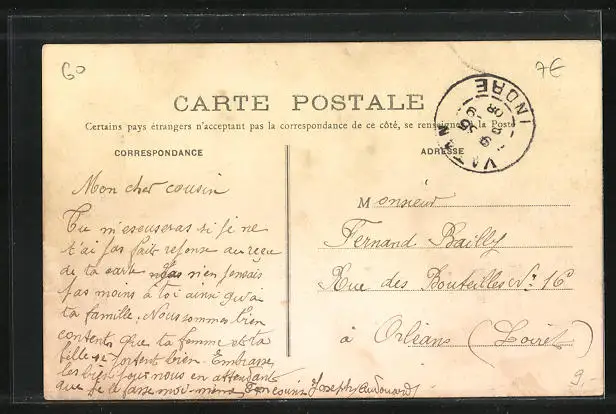 60
7€
CARTE POSTALE
Certains pays étrangers n'acceptant pas la correspondance de ce côté, se renseigner à la Poste
CORRESPONDANCE
ADRESSE
VATAN
INDRE
Mon cher cousin
Tu m'escuseras si je ne
t'ai pas fait reponse au reçu
de ta carte n'en pensais
pas moins à toi ainsi qu'ai
ta famille. Nous sommes bien
contents que ta femme et ta
fille se portent bien. Embrasse
les bien pour nous en attendant
que je le fasse moi même Ton cousin Joseph
Monsieur
Fernand Bailly
Rue des Bouteilles No 16
à Orléans (Loiret)
9-